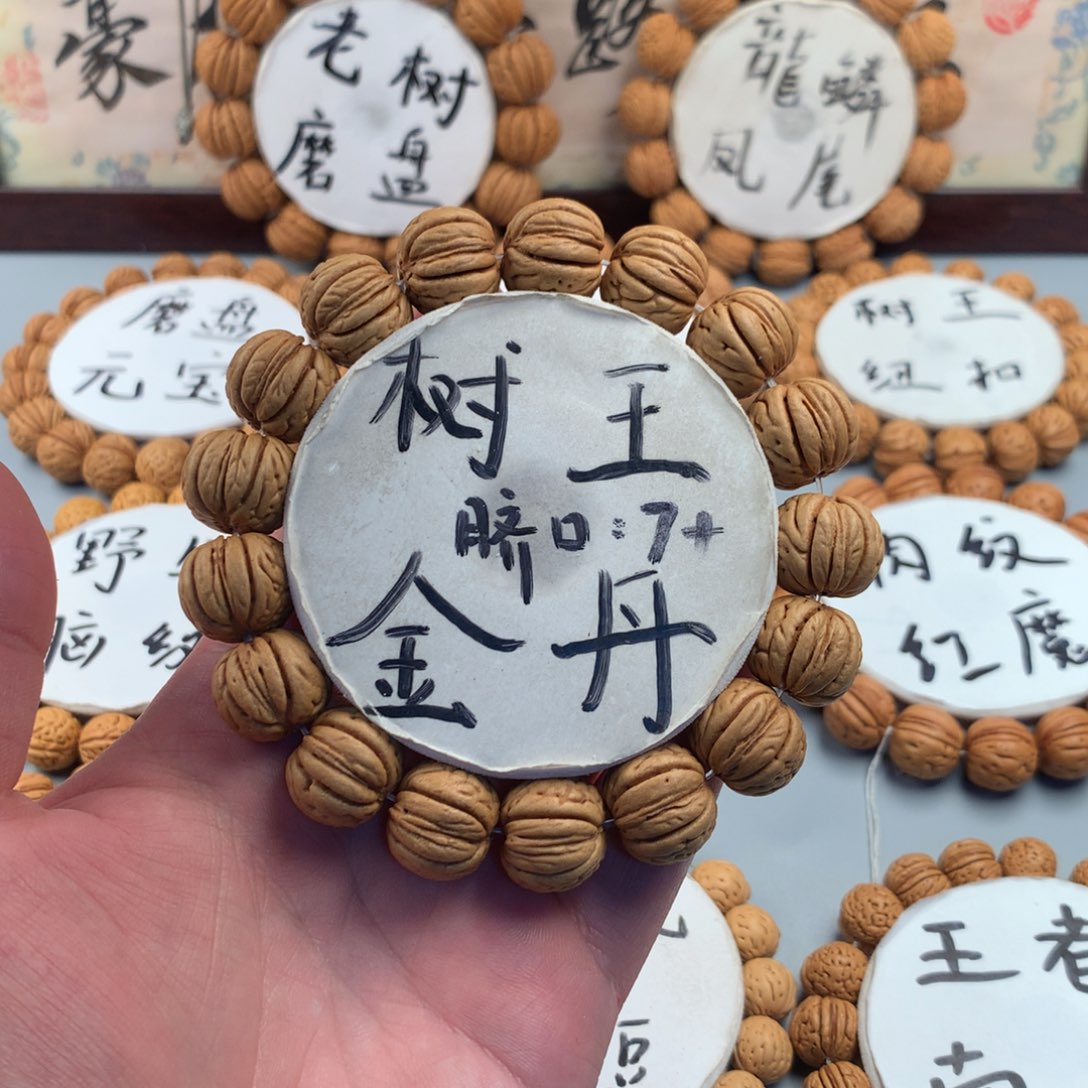 豪
老树
磨盘
龍鳞
凤尾
磨盘
元宝
树王
纽扣
树王
脐口:7+
金丹
野
脑
肉纹
红魔
豆
王者